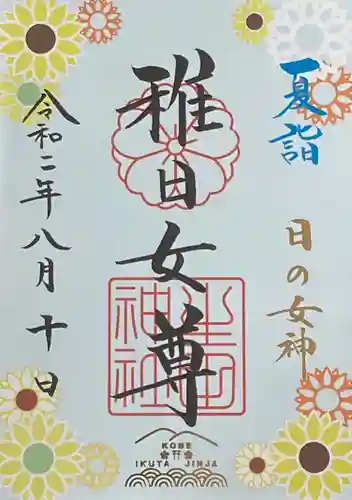 夏詣
日の女神
稚日女尊
生田神社
令和二年八月十日
KOBE
IKUTA JINJA